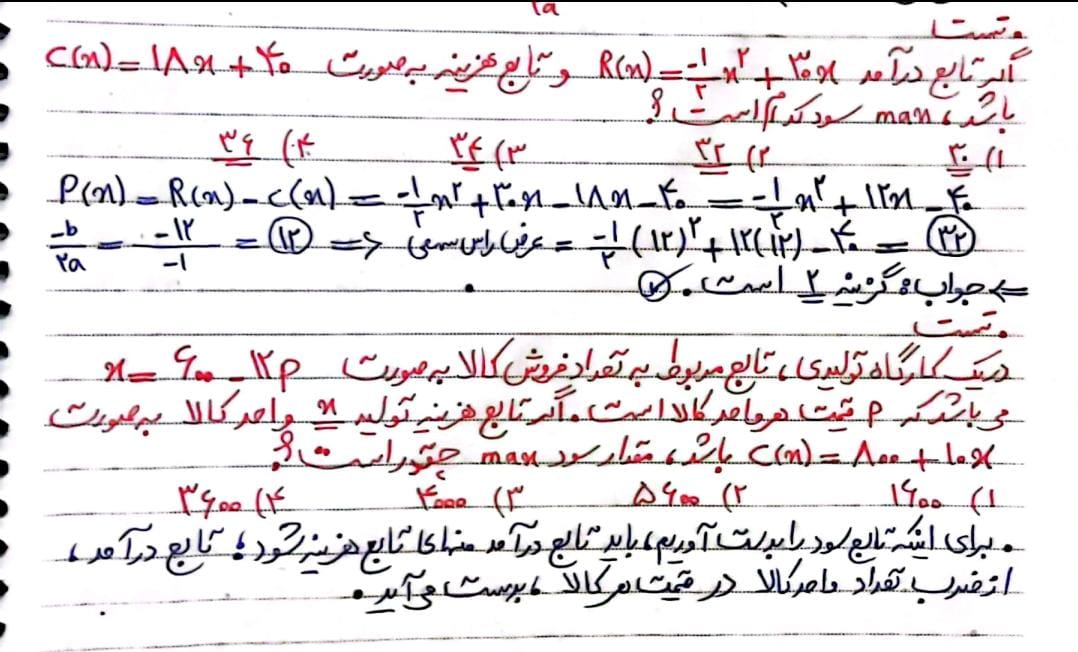 ۲a
• تست
اگر تابع درآمد R(x) = -۱/۲ x² + ۳۰x و تابع هزینه به صورت C(x) = ۱۸x + ۴۰
باشد، max سود کدام است؟
۱) ۳۰ ۲) ۳۲ ۳) ۳۴ ۴) ۳۶
P(x) = R(x) - C(x) = -۱/۲ x² + ۳۰x - ۱۸x - ۴۰ = -۱/۲ x² + ۱۲x - ۴۰
-b/۲a = -۱۲/-۱ = ۱۲ => عرض راس سهمی = -۱/۲ (۱۲)² + ۱۲(۱۲) - ۴۰ = ۳۲
<= جواب: گزینه ۲ است. ✓
• تست
در یک کارگاه تولیدی، تابع مربوط به تعداد فروش کالا به صورت x = ۶۰۰ - ۱۲p
می باشد که p قیمت هر واحد کالا است. اگر تابع هزینه تولید x واحد کالا به صورت
C(x) = ۸۰۰ + ۱۰x باشد، مقدار سود max چقدر است؟
۱) ۱۶۰۰ ۲) ۵۶۰۰ ۳) ۴۰۰۰ ۴) ۳۶۰۰
• برای اینکه تابع سود را بدست آوریم، باید تابع درآمد منهای تابع هزینه شود؛ تابع درآمد،
از ضرب تعداد واحد کالا در قیمت هر کالا، بدست می آید.